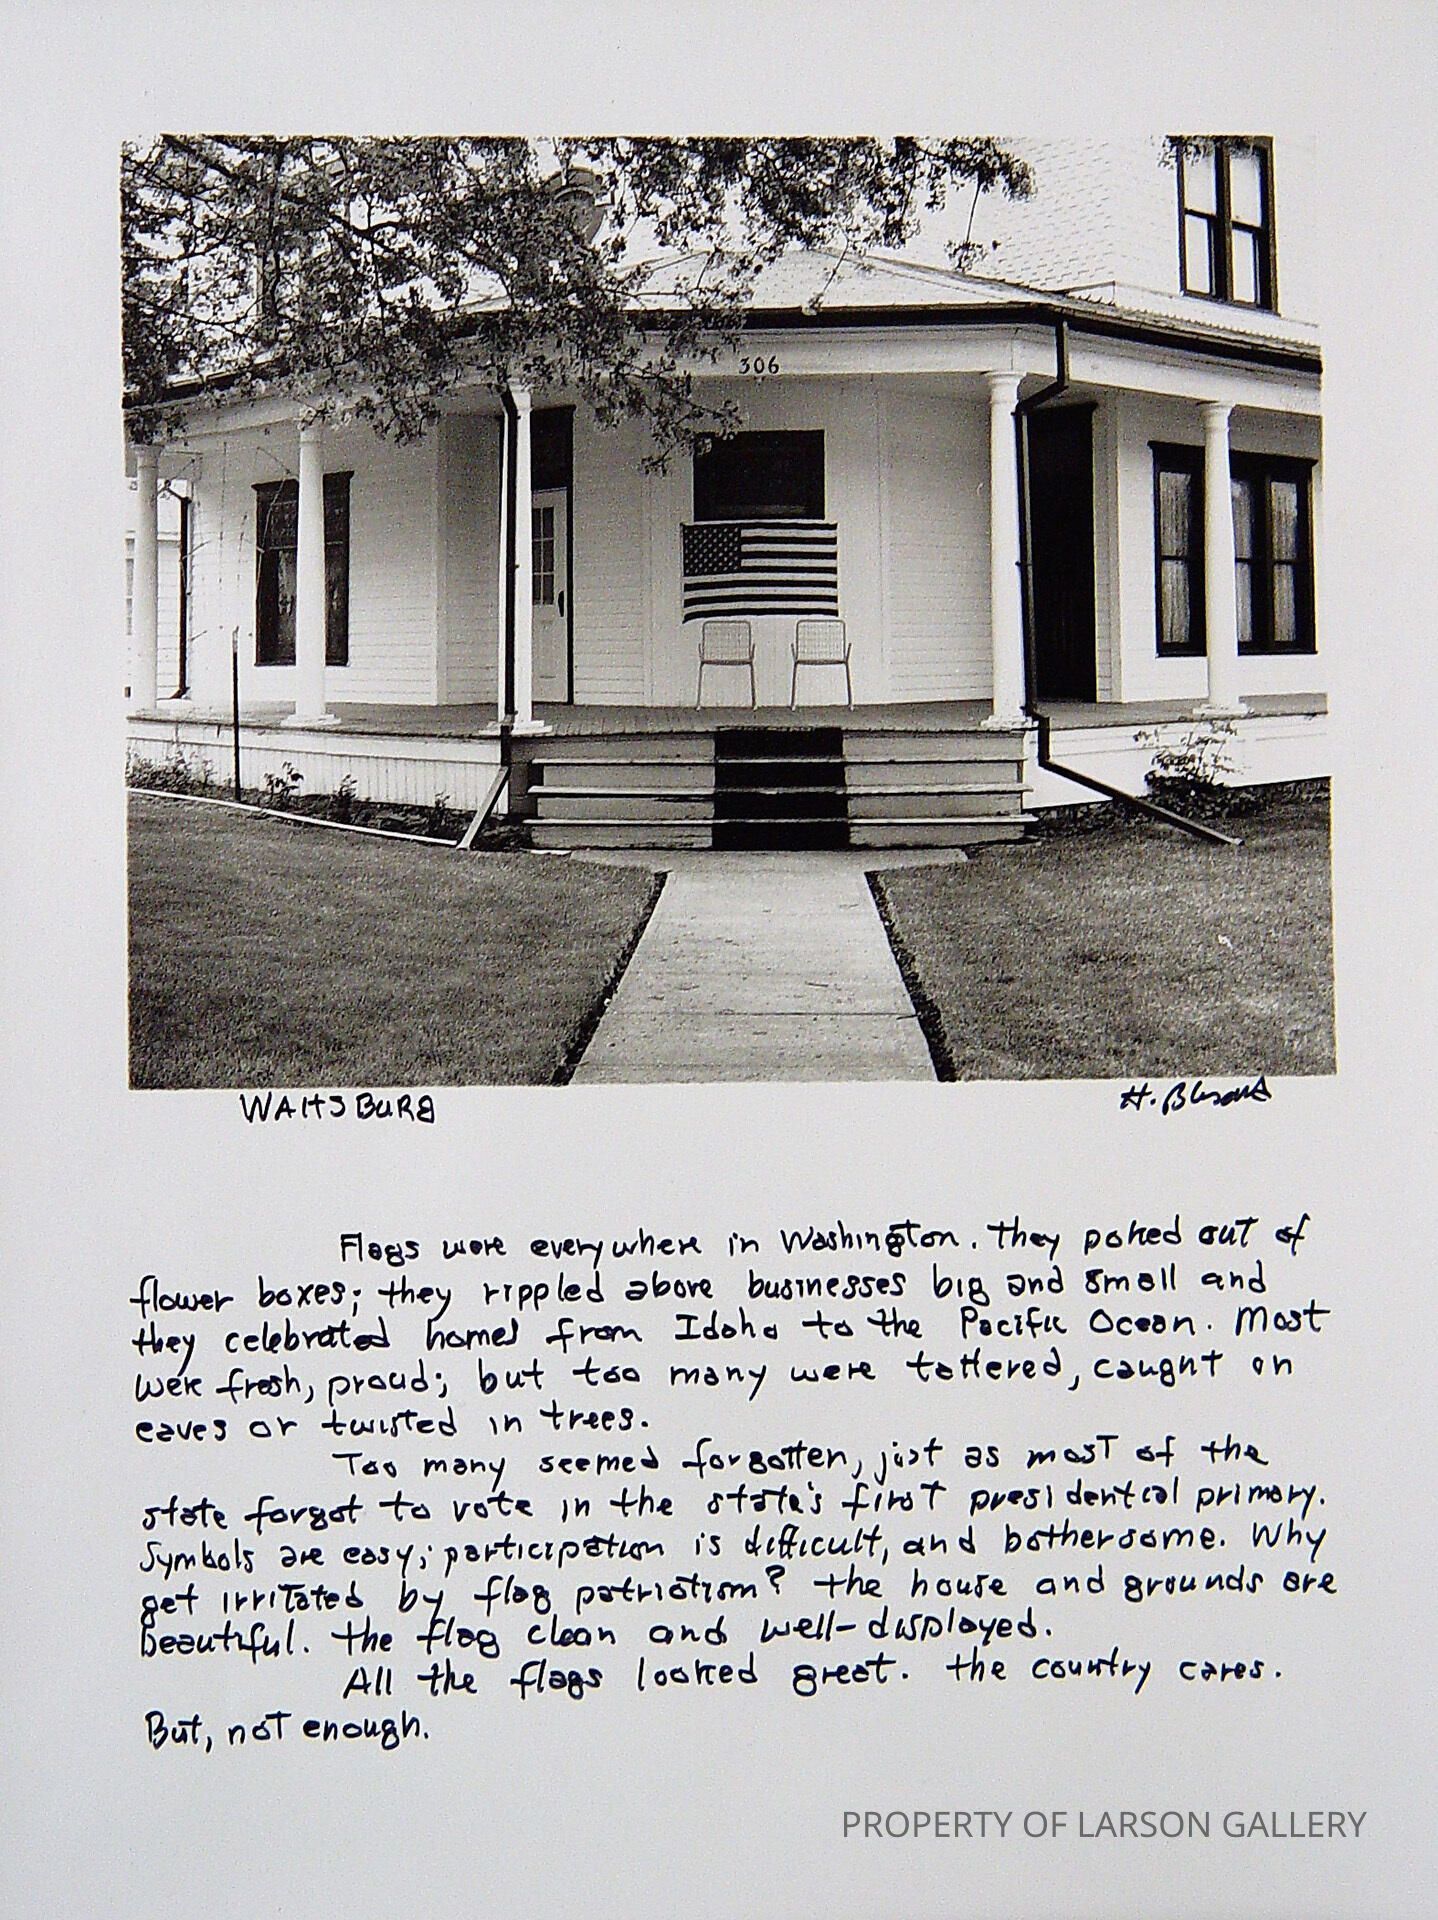 306
WAITSBURG
H.
Flags were everywhere in Washington. They poked out of
flower boxes; they rippled above businesses big and small and
they celebrated homes from Idaho to the Pacific Ocean. Most
were fresh, proud; but too many were tattered, caught on
eaves or twisted in trees.
Too many seemed forgotten, just as most of the
state forgot to vote in the state's first presidential primary.
Symbols are easy; participation is difficult, and bothersome. Why
get irritated by flag patriotism? The house and grounds are
beautiful. The flag clean and well-displayed.
All the flags looked great. The country cares.
But, not enough.
PROPERTY OF LARSON GALLERY